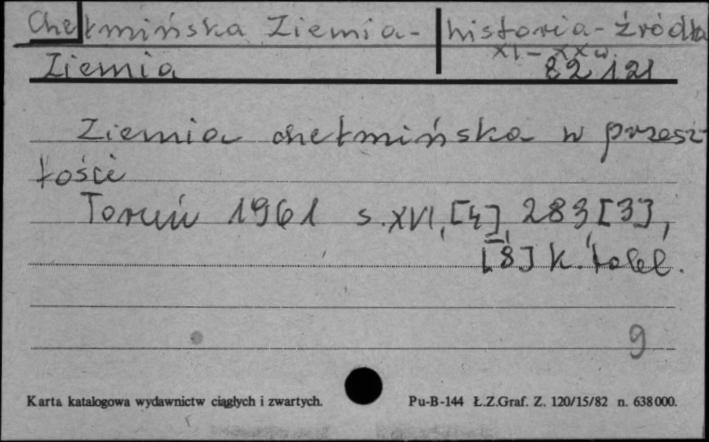 Chełmińska Ziemia - historia - źródła
XI - XX w.
Ziemia 82 121
Ziemia chełmińska w przesz-
łości
Toruń 1961 s. XVI, [4], 283, [3],
[8] k. tabl.
9
Karta katalogowa wydawnictw ciągłych i zwartych. Pu-B-144 Ł.Z.Graf. Z. 120/15/82 n. 638000.